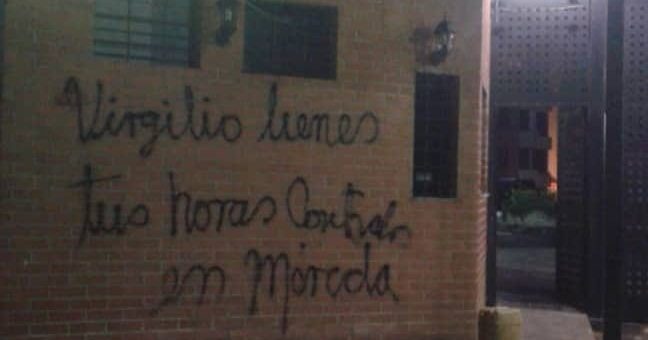 Virgilio tienes
tus horas Contadas
en Móreda